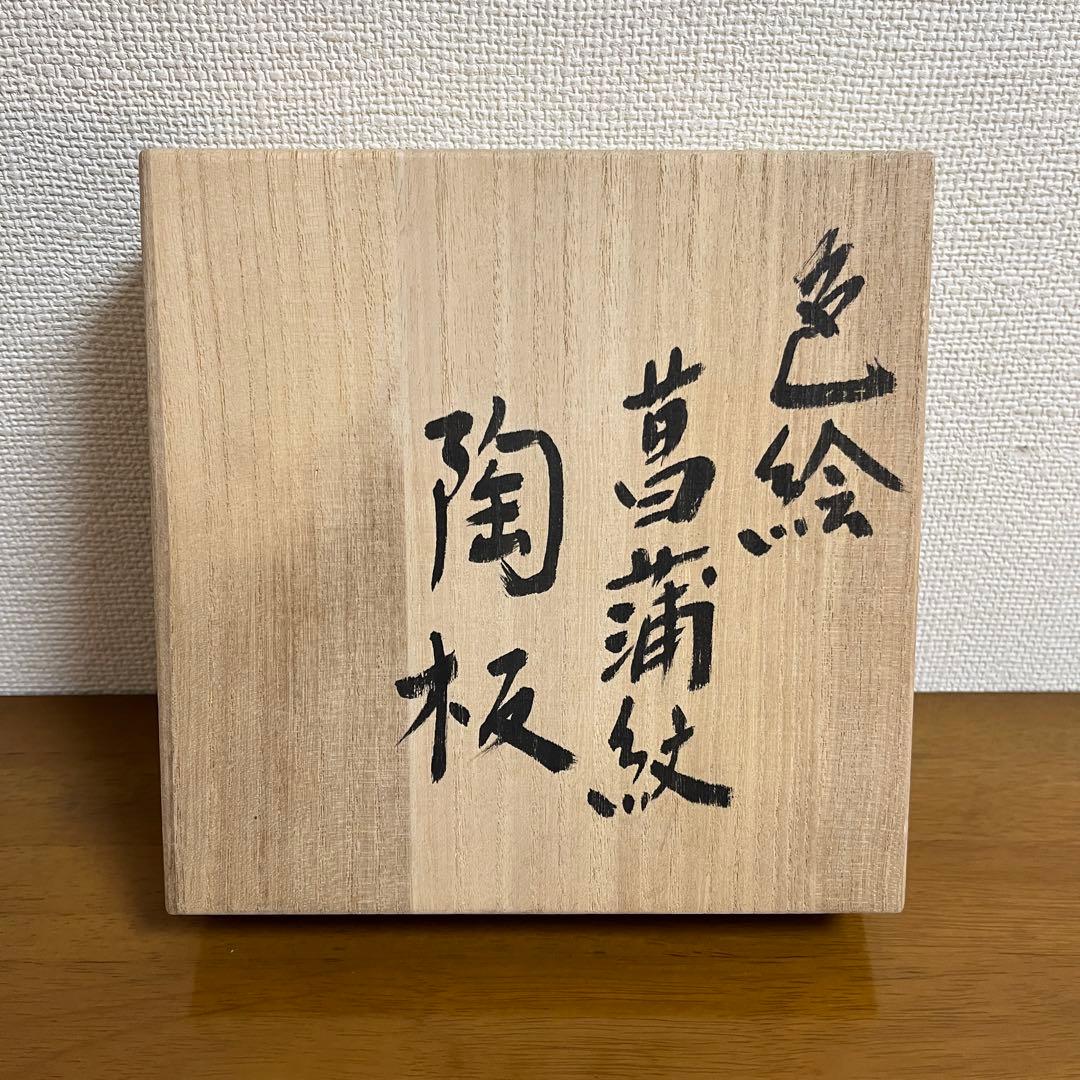 色絵
菖蒲紋
陶板